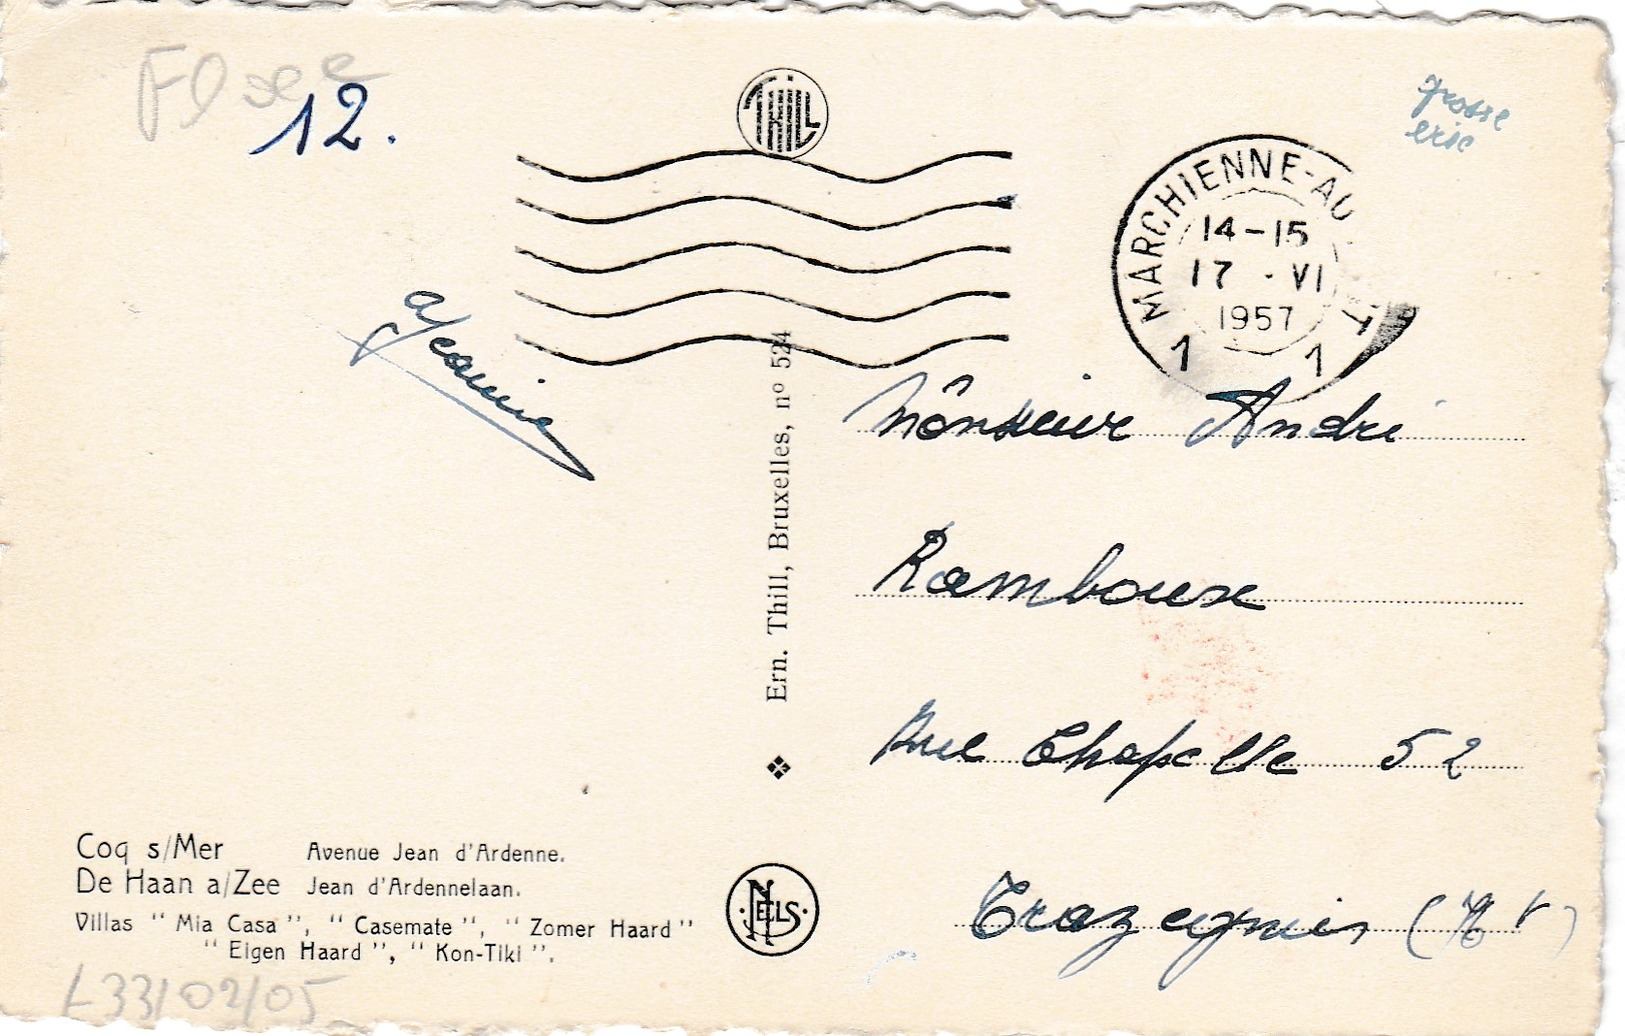 12.
THILL
grosse
MARCHIENNE-AU
14-15
17 · VI
1957
1 1
Jeannine
Ern. Thill, Bruxelles, nº 524
Mônsieur André
Ramboux
Rue Chapelle 52
Trazegnies (Ht)
Coq s/Mer Avenue Jean d'Ardenne.
De Haan a/Zee Jean d'Ardennelaan.
Villas " Mia Casa ", " Casemate ", " Zomer Haard "
" Eigen Haard ", " Kon-Tiki ".
NELS
L33/02/05